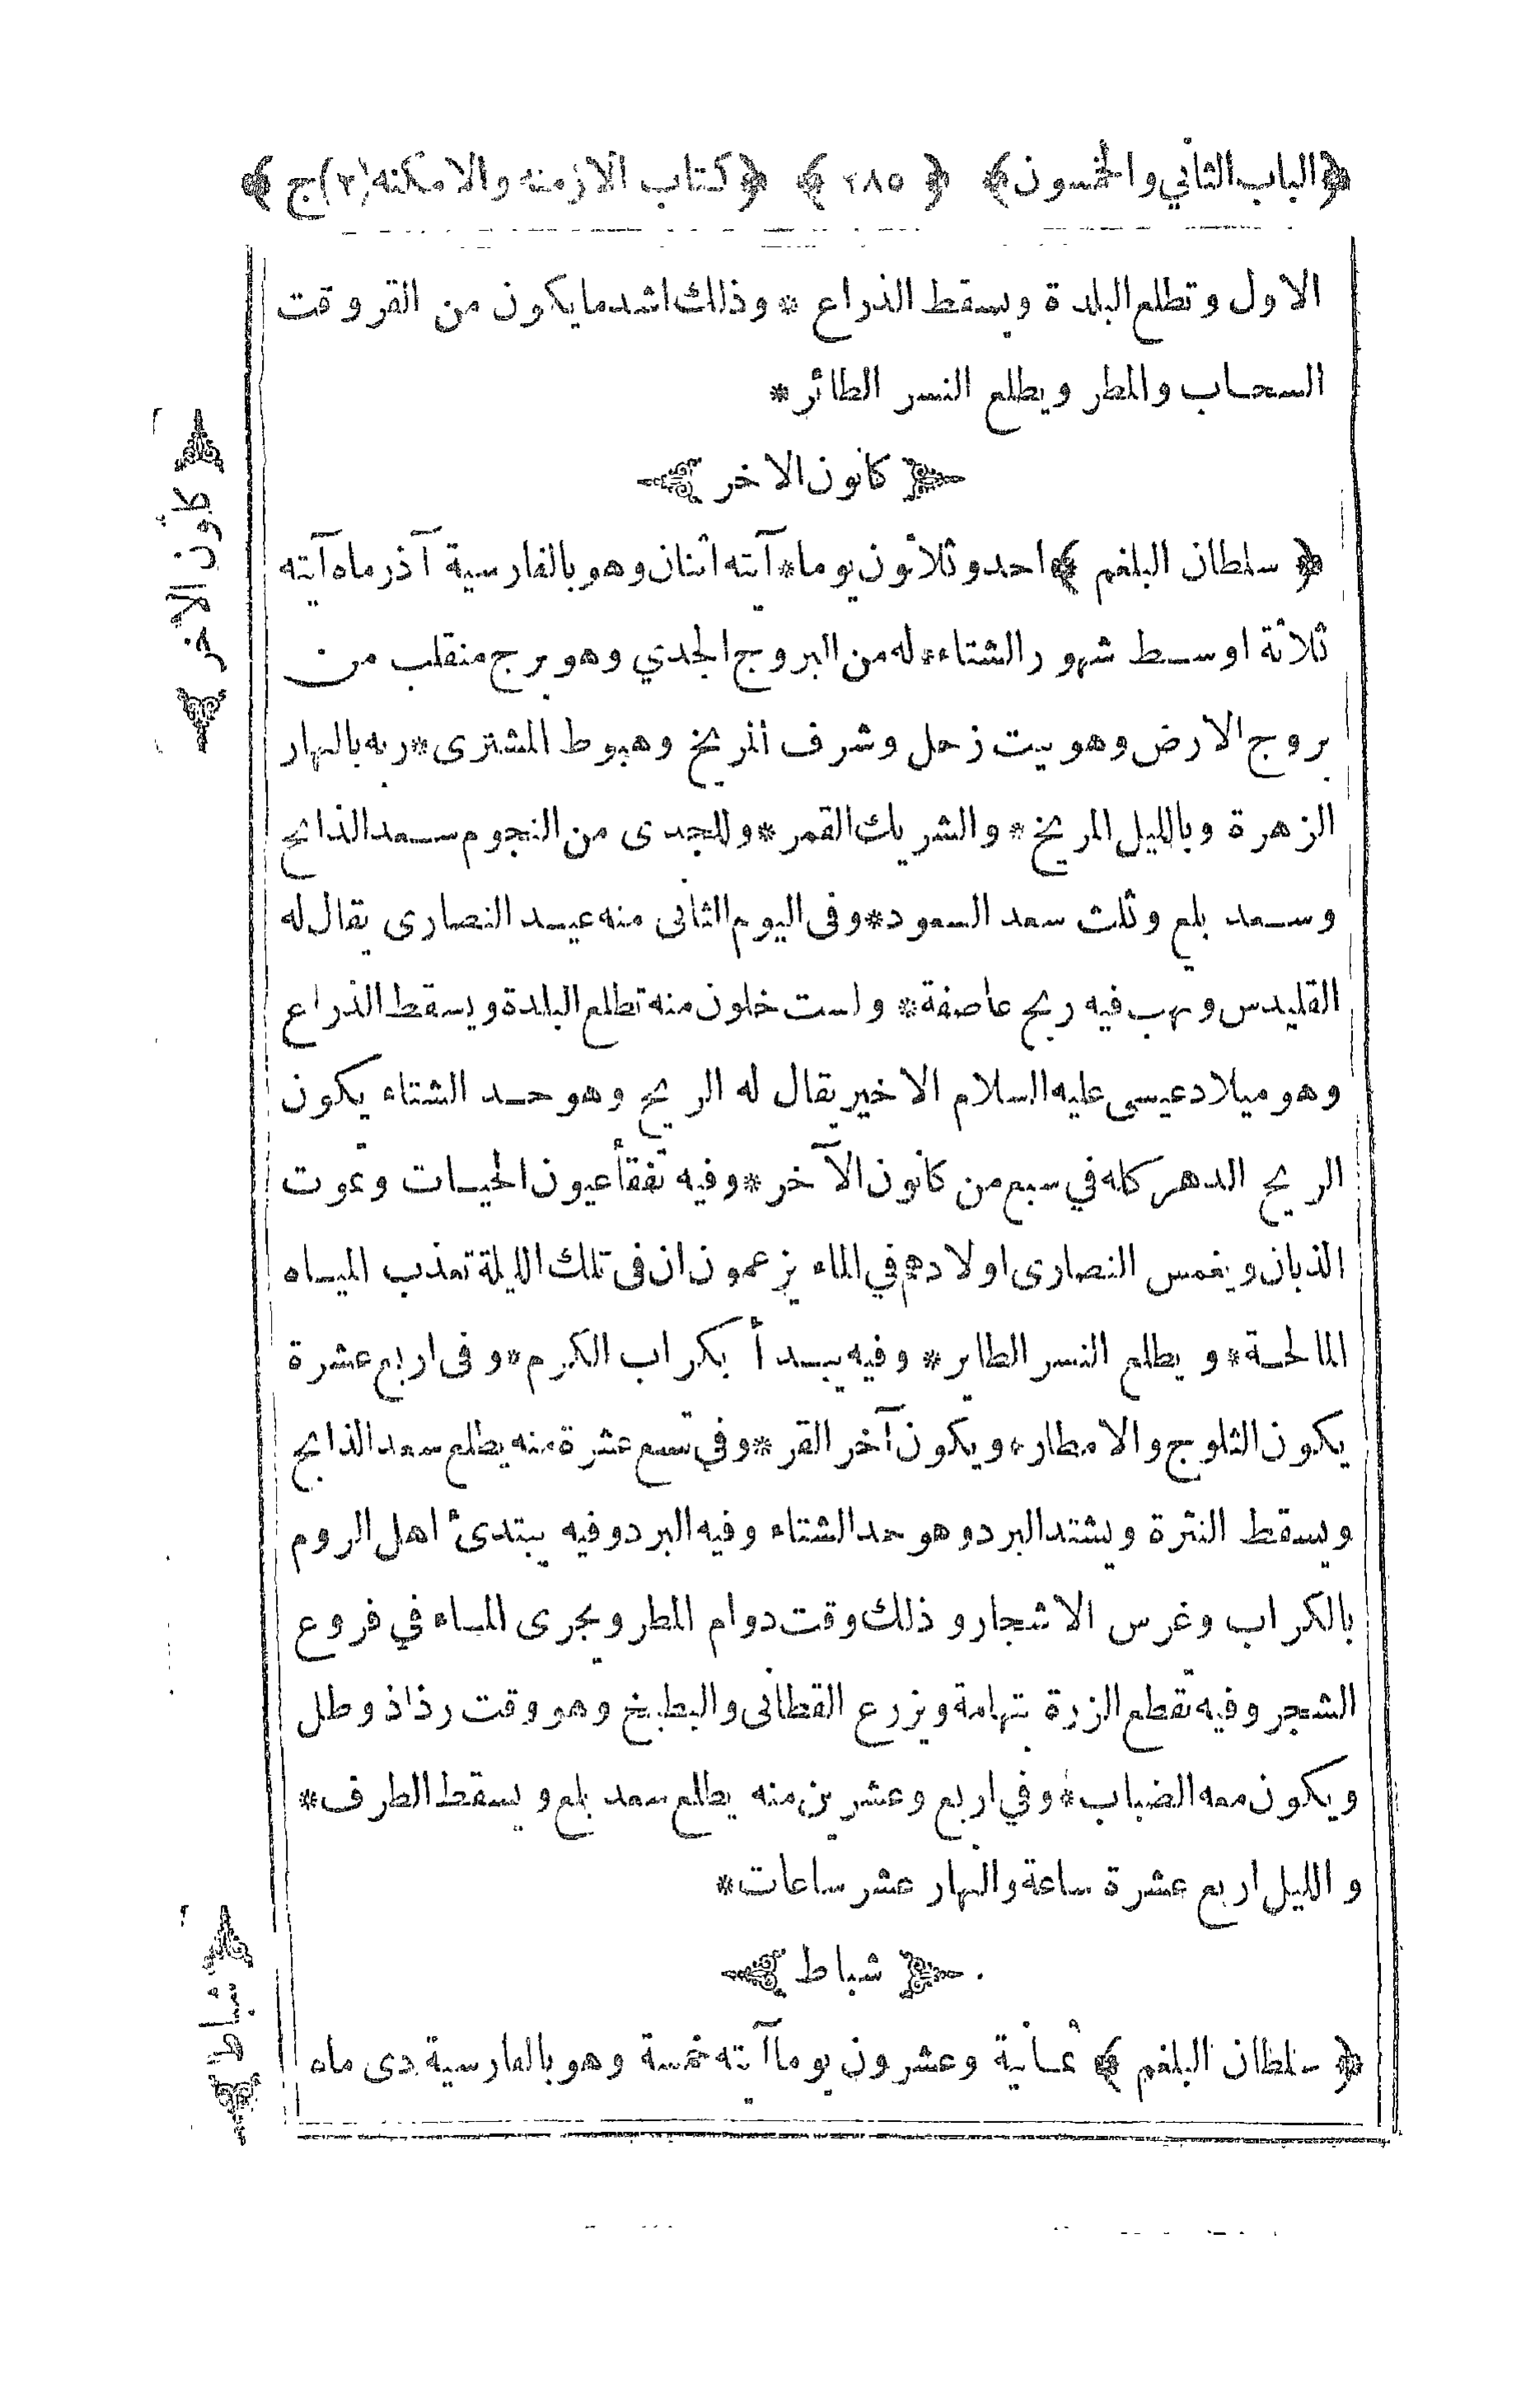 ﴿الباب الثاني والخمسون﴾ ﴿٢٨٥﴾ ﴿كتاب الازمنه والامكنه(٢)ج﴾
الاول وتطلع البلدة ويسقط الذراع * وذلك اشد مايكون من القر وقت
السحاب والمطر ويطلع النسر الطائر *
كانون الاخر
﴿ سلطان البلغم ﴾ احد وثلاثون يوما * آيته اثنان وهو بالفارسية آذرماه آيته
ثلاثة اوسط شهور الشتاء * له من البروج الجدي وهو برج منقلب من
بروج الارض وهو بيت زحل وشرف المريخ وهبوط المشترى * ربه بالنهار
الزهرة وبالليل المريخ * والشريك القمر * وللجدى من النجوم سعد الذابح
وسعد بلع وثلث سعد السعود * وفى اليوم الثانى منه عيد النصارى يقال له
القليدس وتهب فيه ريح عاصفة * ولست خلون منه تطلع البلدة ويسقط الذراع
وهو ميلاد عيسى عليه السلام الاخير يقال له الريح وهو حد الشتاء يكون
الريح الدهر كله في سبع من كانون الآخر * وفيه تفقأ عيون الحيات وتموت
الذبان ويغمس النصارى اولادهم في الماء يزعمون ان فى تلك الليلة تعذب المياه
المالحة * ويطلع النسر الطاير * وفيه يبدأ بكراب الكرم * وفى اربع عشرة
يكون الثلوج والامطار * ويكون آخر القر * وفي تسع عشرة منه يطلع سعد الذابح
ويسقط النثرة ويشتد البرد وهو حد الشتاء وفيه البرد وفيه يبتدئ اهل الروم
بالكراب وغرس الاشجار و ذلك وقت دوام المطر ويجرى المياه في فروع
الشجر وفيه تقطع الزرة بتهامة ويزرع القطانى والبطيخ وهو وقت رذاذ وطل
ويكون معه الضباب * وفي اربع وعشرين منه يطلع سعد بلع ويسقط الطرف *
و الليل اربع عشرة ساعة والنهار عشر ساعات *
شباط
﴿ سلطان البلغم ﴾ ثمانية وعشرون يوما آيته خمسة وهو بالفارسية دى ماه
كانون الاخر
شباط